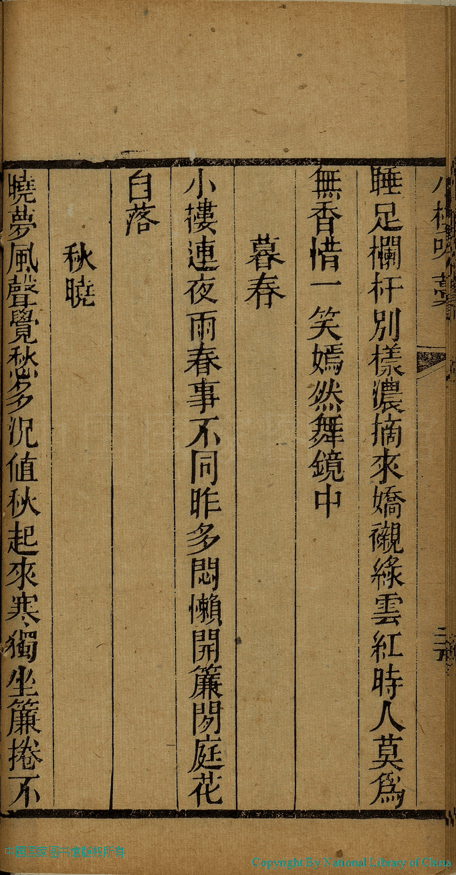 睡足欄杆別樣濃摘來嬌襯綠雲紅時人莫爲
無香惜一笑嫣然舞鏡中
暮春
小樓連夜雨春事不同昨多悶懶開簾閒庭花
自落
秋曉
曉夢風聲覺愁多況值秋起來寒獨坐簾捲不
Copyright By National Library of China